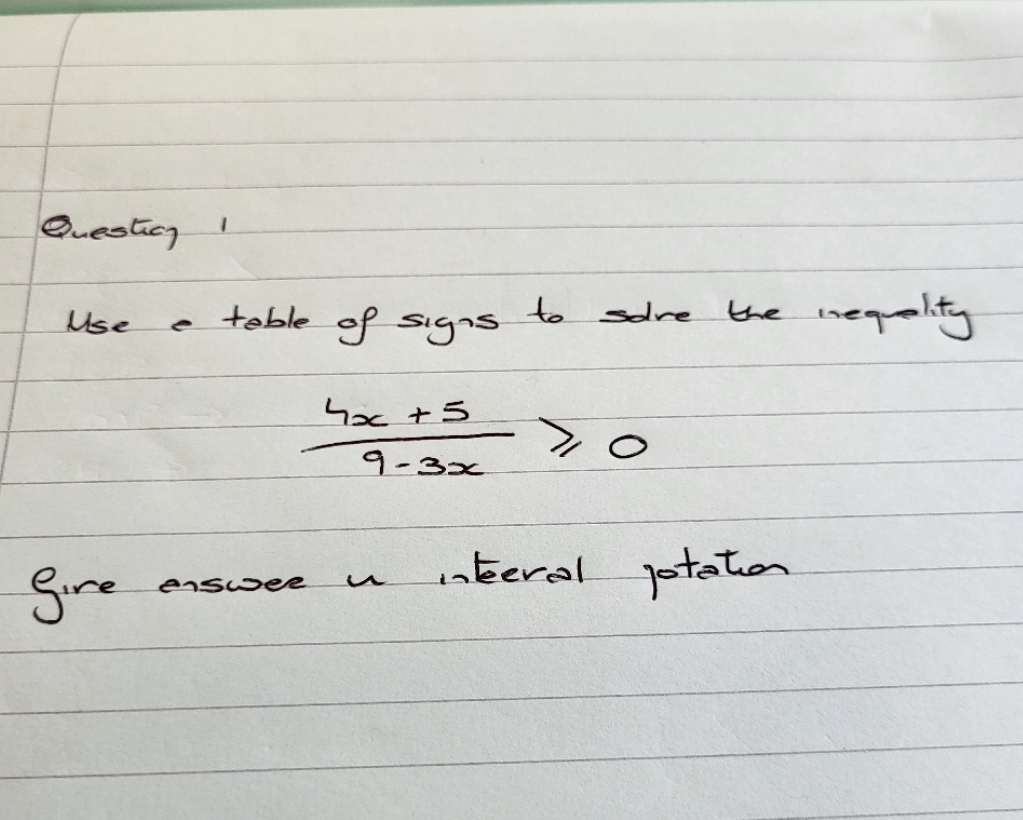 Question 1
Use a table of signs to solve the inequality
4x + 5
9 - 3x ⩾ 0
Give answer in interval notation